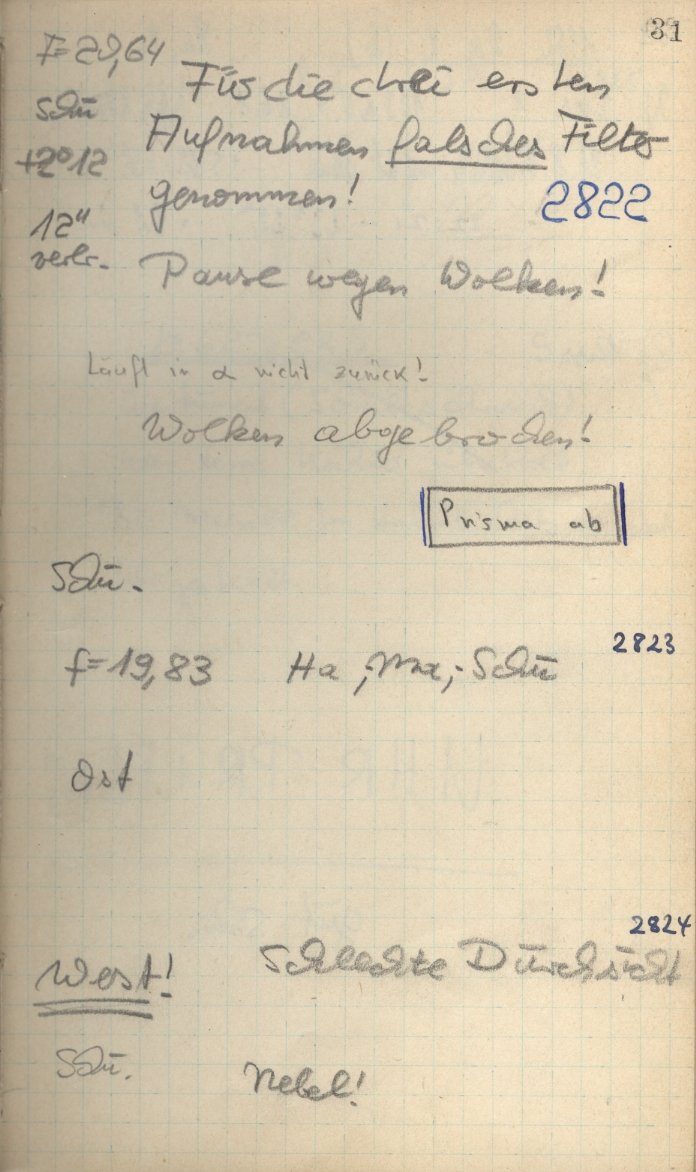 31
F=20,64
Für die drei ersten
Schü
Aufnahmen falsches Filter
+2°12
genommen!
2822
12"
verlr.
Pause wegen Wolken!
Läuft in α nicht zurück!
Wolken abgebrochen!
Prisma ab
Schü.
2823
f=19,83 Ha,- Mx,- Schü
Ost
2824
Schlechte Dürchsicht
West!
Schü.
Nebel!